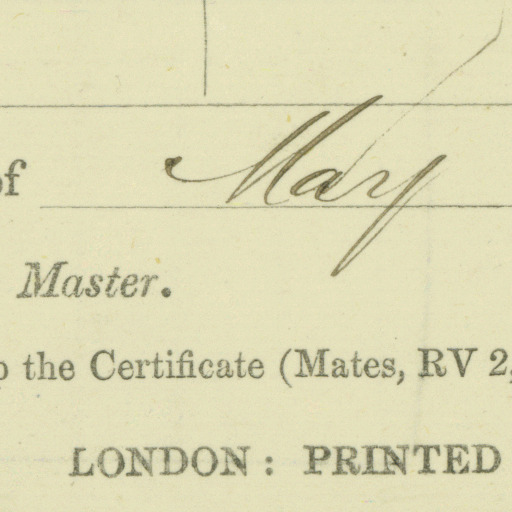 of May
Master.
the Certificate (Mates, RV 2,
LONDON: PRINTED